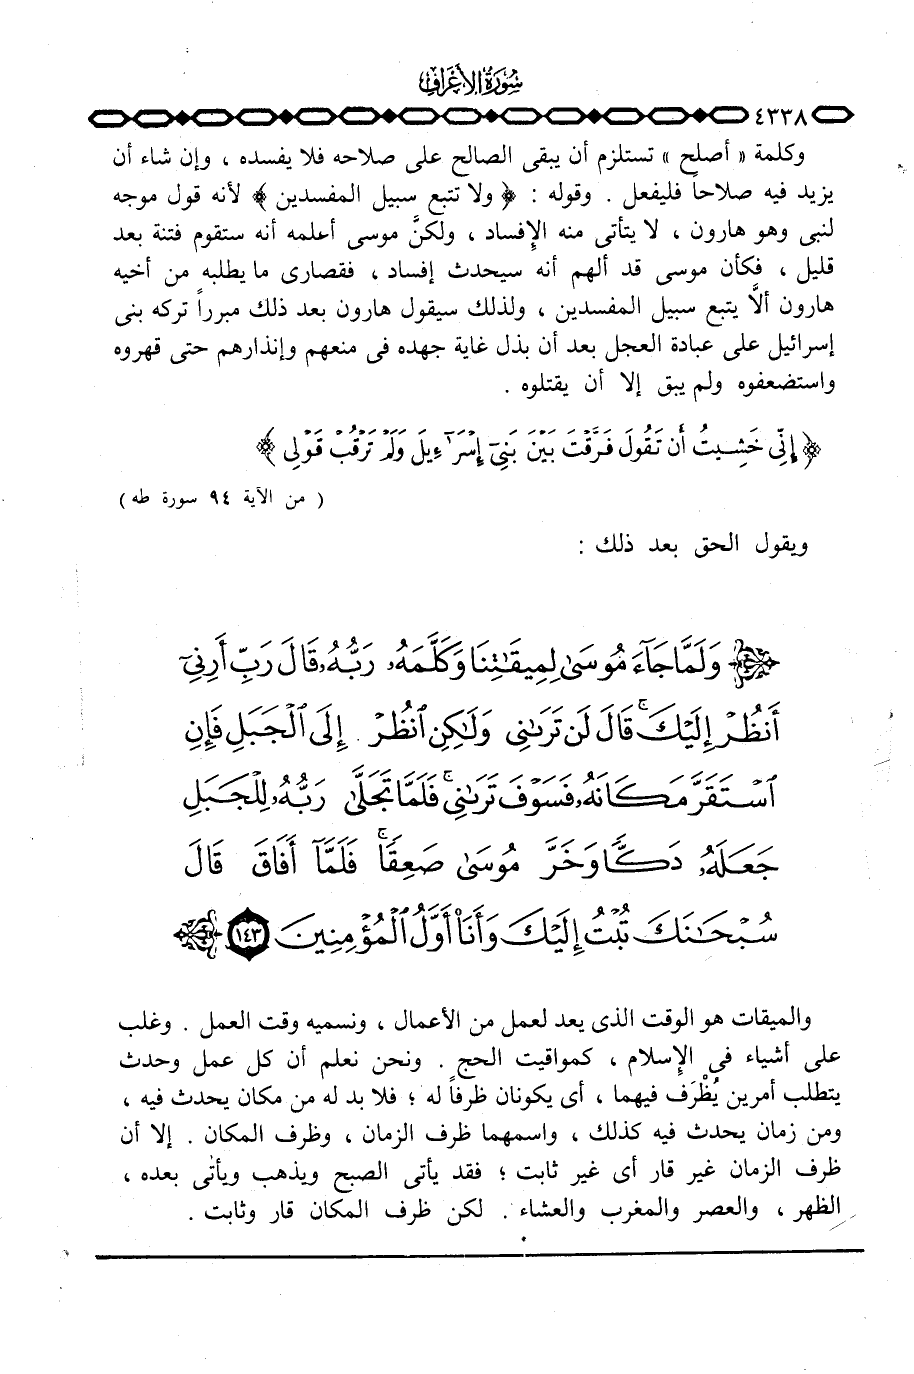 سُورَةُ الأَعْرَافِ
٤٣٣٨
وكلمة « أصلح » تستلزم أن يبقى الصالح على صلاحه فلا يفسده ، وإن شاء أن
يزيد فيه صلاحاً فليفعل . وقوله : ﴿ ولا تتبع سبيل المفسدين ﴾ لأنه قول موجه
لنبى وهو هارون ، لا يتأتى منه الإفساد ، ولكنَّ موسى أعلمه أنه ستقوم فتنة بعد
قليل ، فكأن موسى قد ألهم أنه سيحدث إفساد ، فقصارى ما يطلبه من أخيه
هارون ألاَّ يتبع سبيل المفسدين ، ولذلك سيقول هارون بعد ذلك مبرراً تركه بنى
إسرائيل على عبادة العجل بعد أن بذل غاية جهده فى منعهم وإنذارهم حتى قهروه
واستضعفوه ولم يبق إلا أن يقتلوه .
﴿ إِنِّي خَشِيتُ أَن تَقُولَ فَرَّقْتَ بَيْنَ بَنِيٓ إِسْرَٰٓءِيلَ وَلَمْ تَرْقُبْ قَوْلِى ﴾
( من الآية ٩٤ سورة طه )
ويقول الحق بعد ذلك :
﴿ وَلَمَّا جَآءَ مُوسَىٰ لِمِيقَٰتِنَا وَكَلَّمَهُۥ رَبُّهُۥ قَالَ رَبِّ أَرِنِيٓ
أَنظُرْ إِلَيْكَ ۚ قَالَ لَن تَرَىٰنِى وَلَٰكِنِ ٱنظُرْ إِلَى ٱلْجَبَلِ فَإِنِ
ٱسْتَقَرَّ مَكَانَهُۥ فَسَوْفَ تَرَىٰنِى ۚ فَلَمَّا تَجَلَّىٰ رَبُّهُۥ لِلْجَبَلِ
جَعَلَهُۥ دَكًّا وَخَرَّ مُوسَىٰ صَعِقًا ۚ فَلَمَّآ أَفَاقَ قَالَ
سُبْحَٰنَكَ تُبْتُ إِلَيْكَ وَأَنَا۠ أَوَّلُ ٱلْمُؤْمِنِينَ ١٤٣ ﴾
والميقات هو الوقت الذى يعد لعمل من الأعمال ، ونسميه وقت العمل . وغلب
على أشياء فى الإسلام ، كمواقيت الحج . ونحن نعلم أن كل عمل وحدث
يتطلب أمرين يُظْرَف فيهما ، أى يكونان ظرفاً له ؛ فلا بد له من مكان يحدث فيه ،
ومن زمان يحدث فيه كذلك ، واسمهما ظرف الزمان ، وظرف المكان . إلا أن
ظرف الزمان غير قار أى غير ثابت ؛ فقد يأتى الصبح ويذهب ويأتى بعده ،
الظهر ، والعصر والمغرب والعشاء . لكن ظرف المكان قار وثابت .